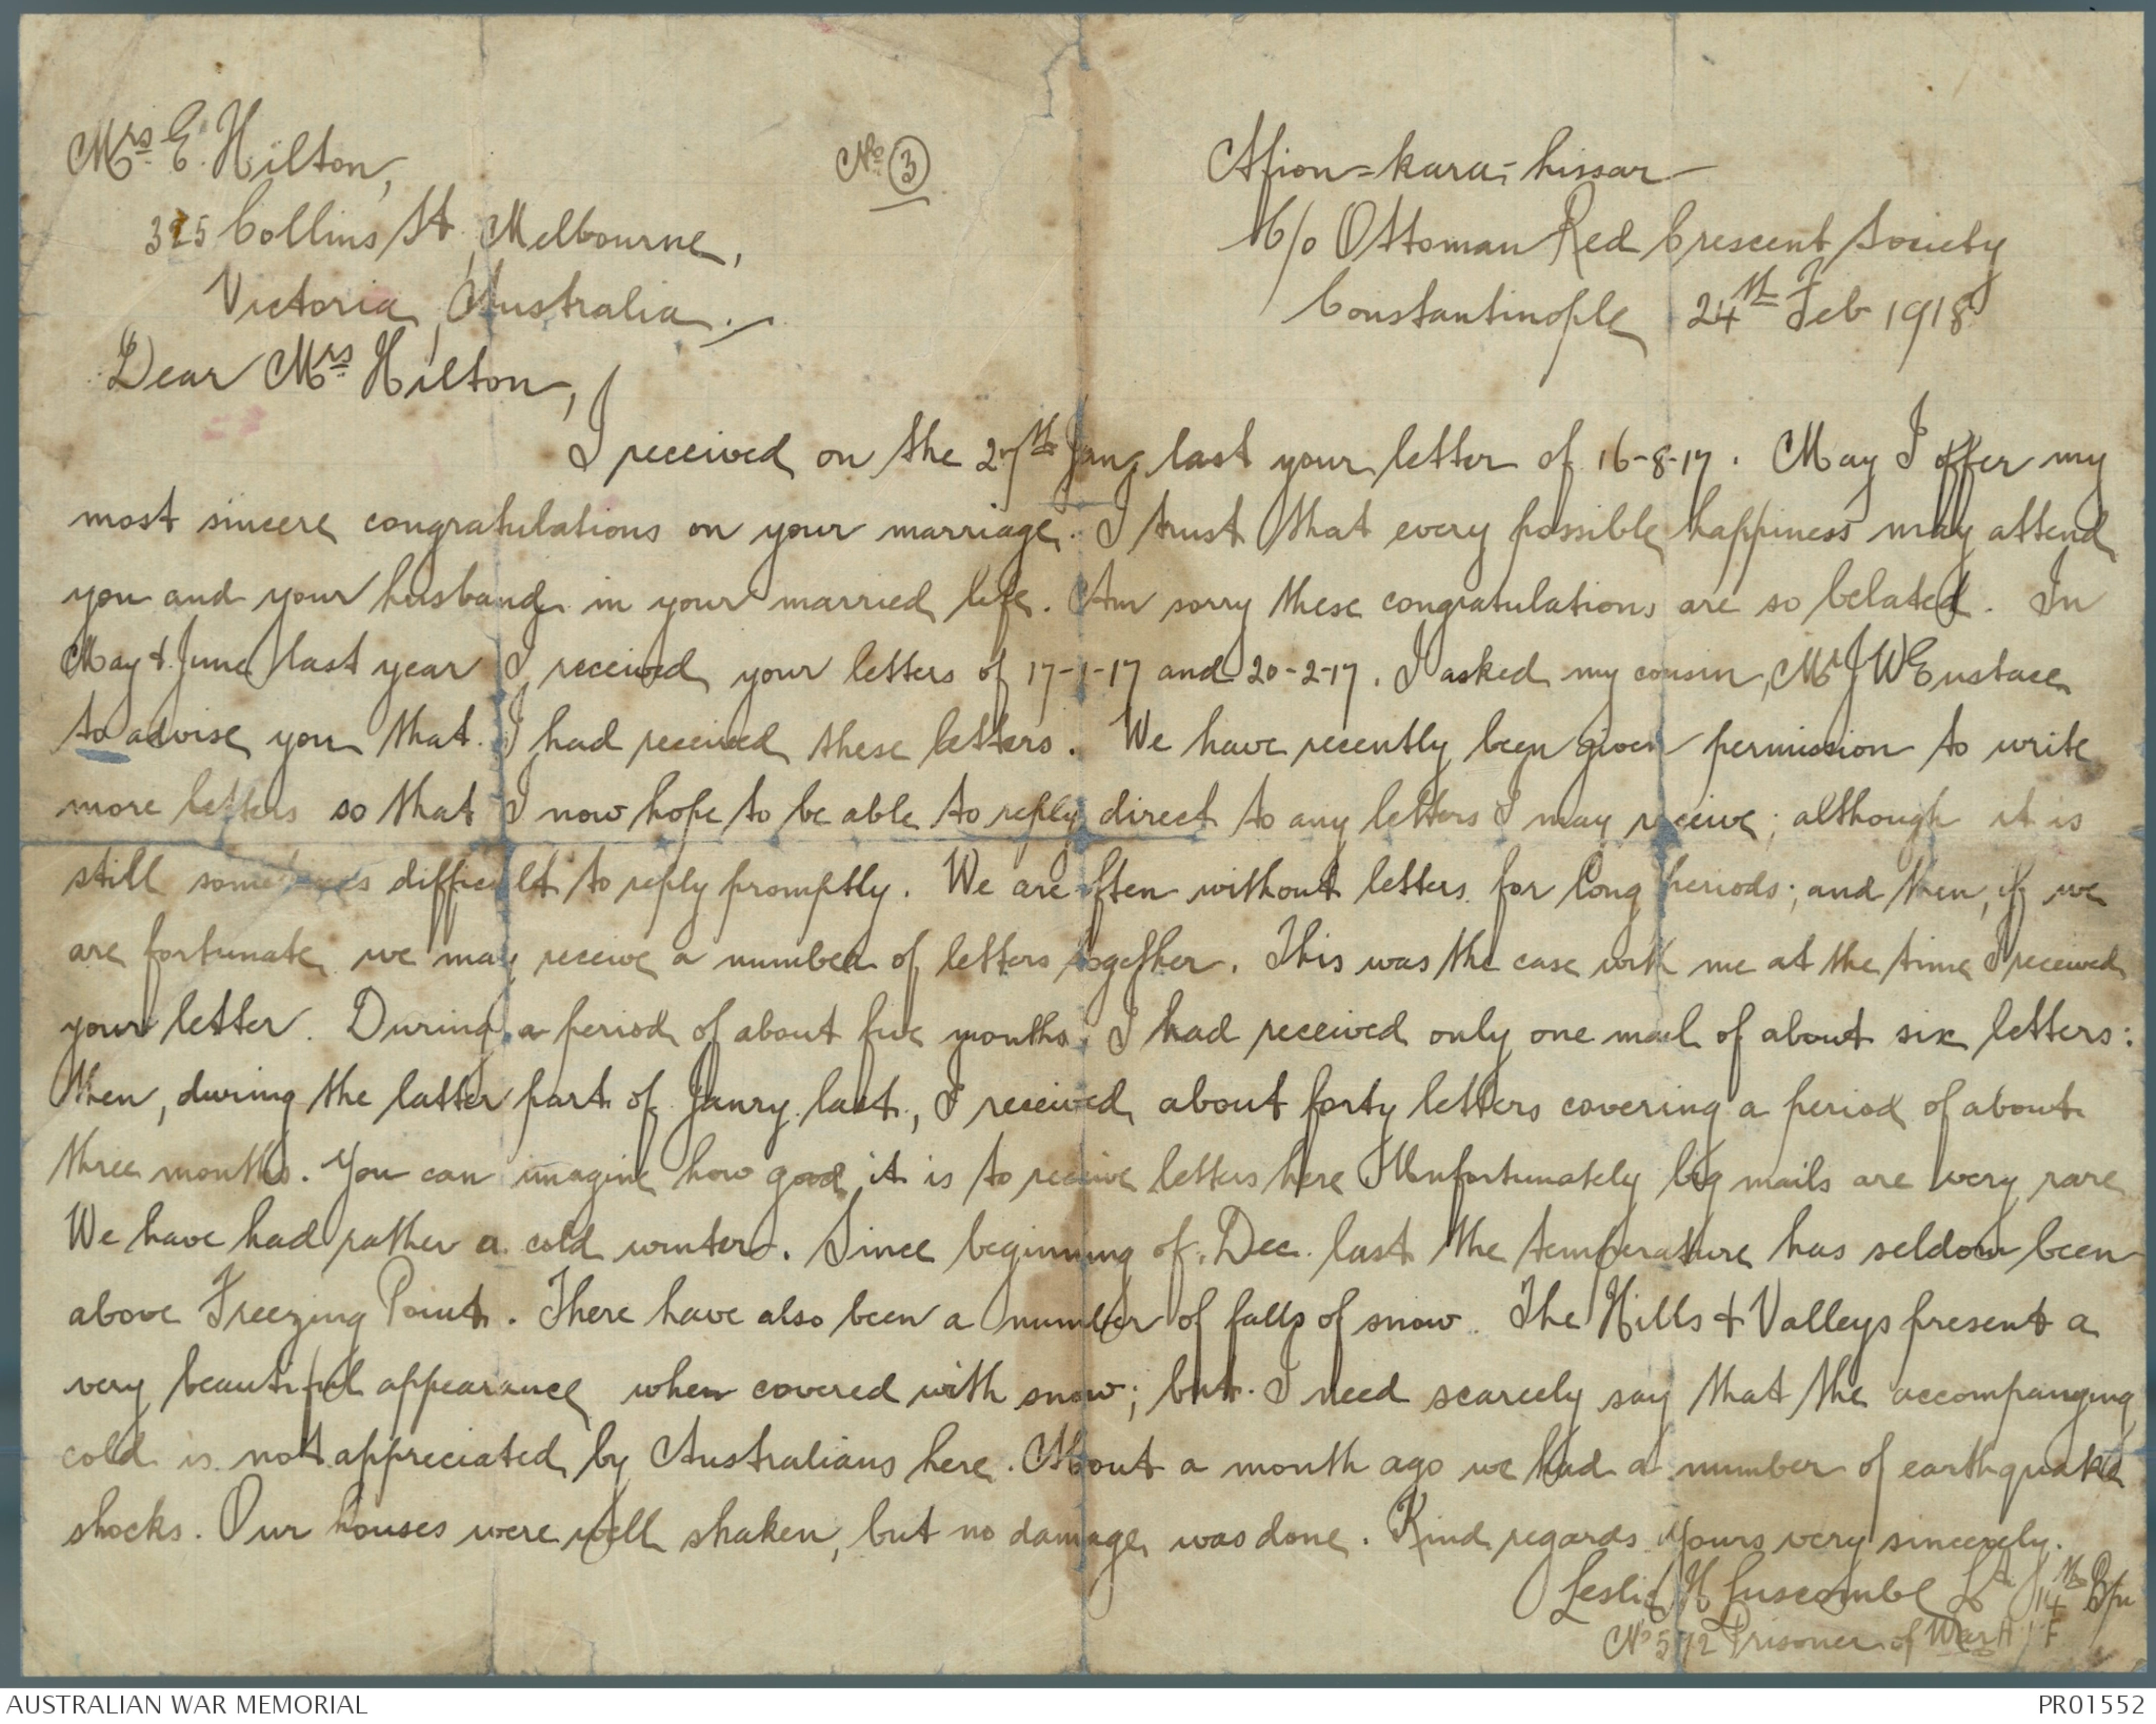 Mrs. E. Hilton,
No. 3
Afion-kara-hissar
325 Collins St, Melbourne,
C/o Ottoman Red Crescent Society
Victoria, Australia.
Constantinople 24th Feb 1918
Dear Mrs. Hilton,
I received on the 27th Jan, last your letter of 16-8-17. May I offer my
most sincere congratulations on your marriage. I trust that every possible happiness may attend
you and your husband in your married life. Am sorry these congratulations are so belated. In
May & June last year I received your letters of 17-1-17 and 20-2-17. I asked my cousin, Mr J W Eustace
to advise you that I had received these letters. We have recently been given permission to write
more letters so that I now hope to be able to reply direct to any letters I may receive; although it is
still sometimes difficult to reply promptly. We are often without letters for long periods; and then, if we
are fortunate we may receive a number of letters together. This was the case with me at the time I received
your letter. During a period of about five months I had received only one mail of about six letters:
then, during the latter part of Janry. last, I received about forty letters covering a period of about
three months. You can imagine how good it is to receive letters here Unfortunately big mails are very rare
We have had rather a cold winter. Since beginning of Dec. last the temperature has seldom been
above Freezing Point. There have also been a number of falls of snow. The Hills & Valleys present a
very beautiful appearance when covered with snow; but I need scarcely say that the accompanying
cold is not appreciated by Australians here. About a month ago we had a number of earthquake
shocks. Our houses were well shaken, but no damage was done. Kind regards Yours very sincerely.
Leslie H Luscombe Lt 14th Bn
No 572 Prisoner of War A I F
AUSTRALIAN WAR MEMORIAL
PR01552